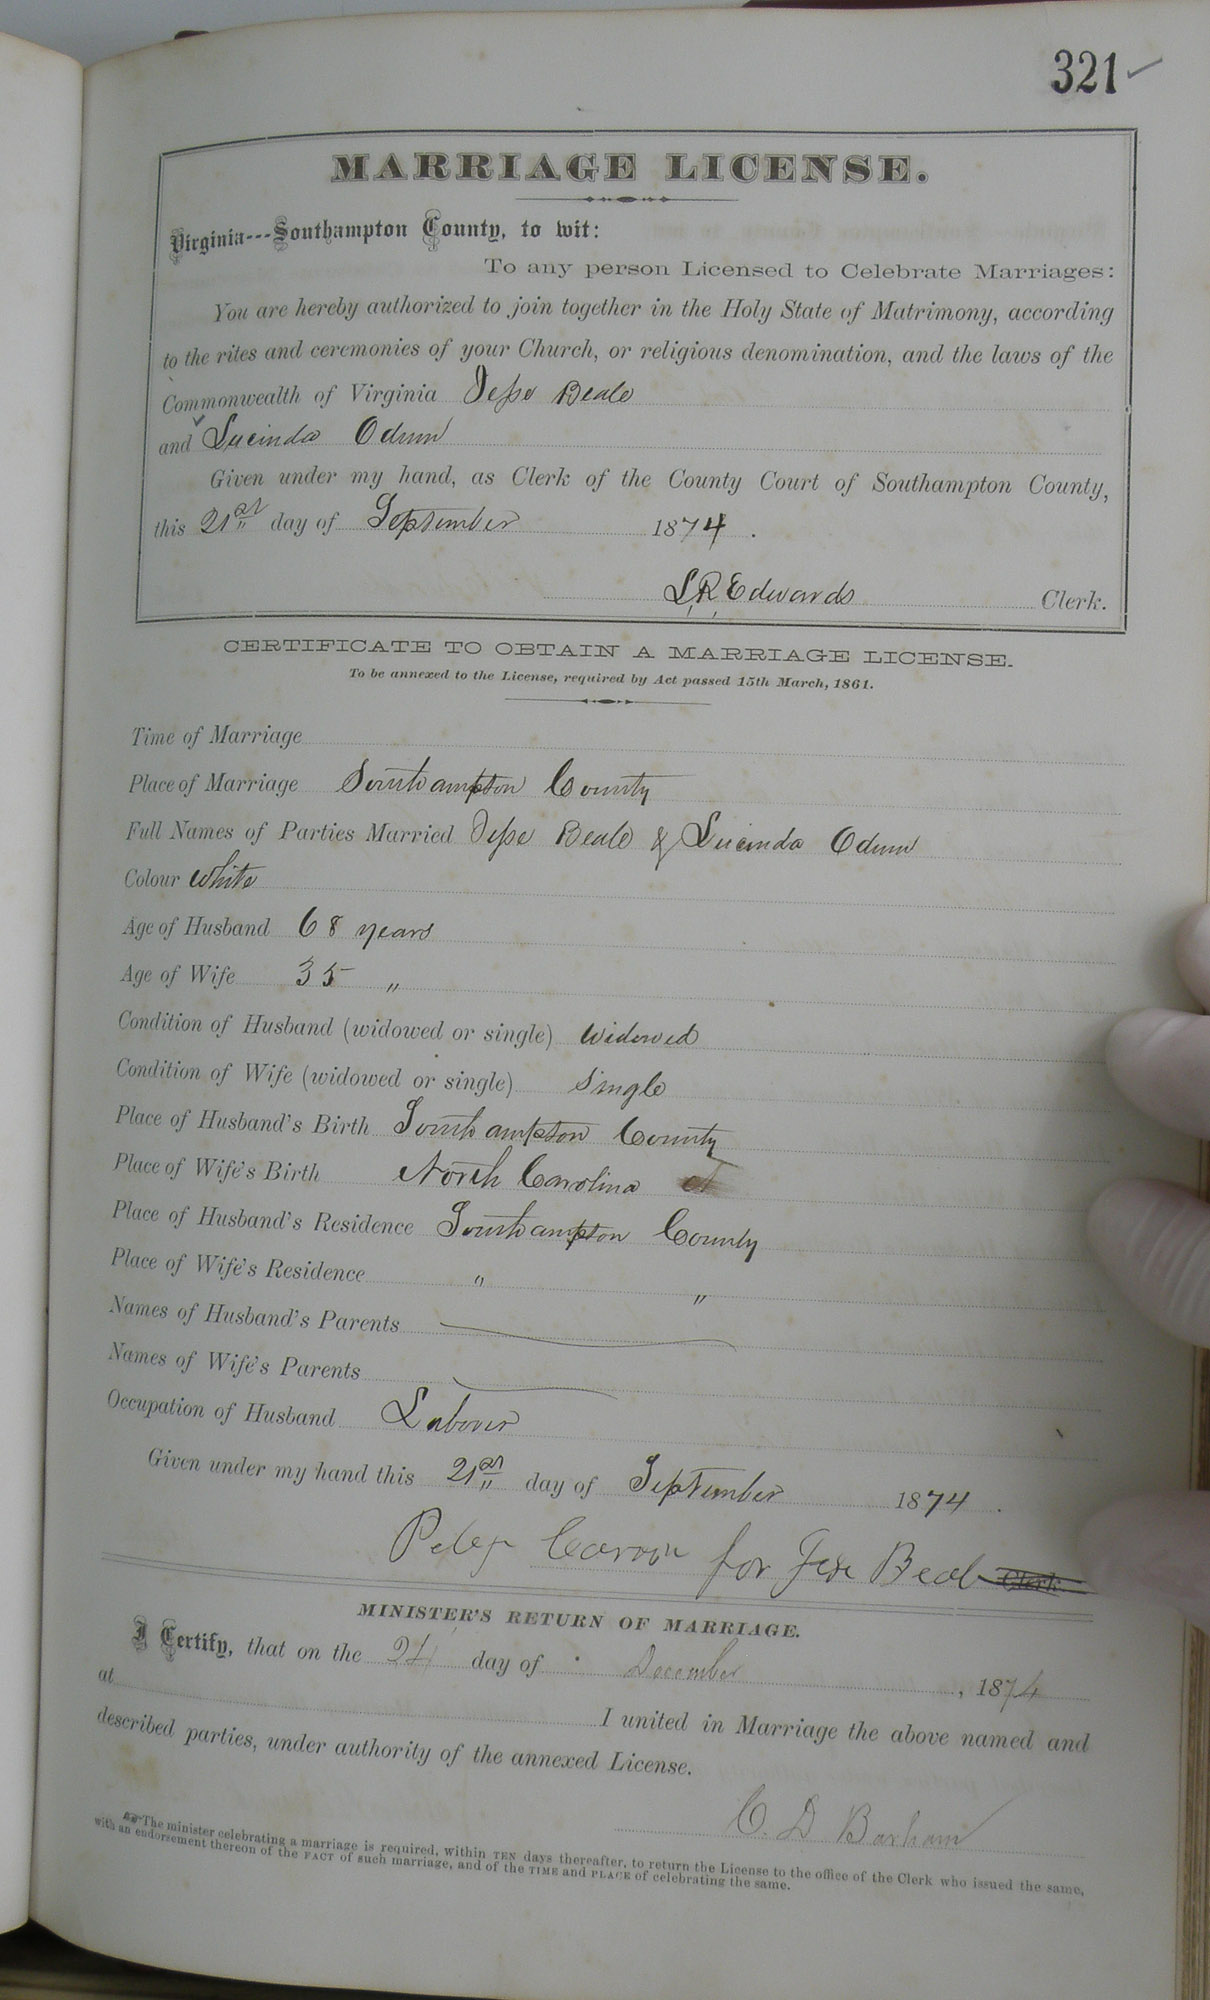 321
MARRIAGE LICENSE.
Virginia---Southampton County, to wit:
To any person Licensed to Celebrate Marriages:
You are hereby authorized to join together in the Holy State of Matrimony, according
to the rites and ceremonies of your Church, or religious denomination, and the laws of the
Commonwealth of Virginia Jesse Beale
and Lucinda Odum
Given under my hand, as Clerk of the County Court of Southampton County,
this 21st day of September 1874.
L R Edwards Clerk.
CERTIFICATE TO OBTAIN A MARRIAGE LICENSE.
To be annexed to the License, required by Act passed 15th March, 1861.
Time of Marriage
Place of Marriage Southampton County
Full Names of Parties Married Jesse Beale & Lucinda Odum
Colour White
Age of Husband 68 years
Age of Wife 35 "
Condition of Husband (widowed or single) Widowed
Condition of Wife (widowed or single) Single
Place of Husband's Birth Southampton County
Place of Wife's Birth North Carolina
Place of Husband's Residence Southampton County
Place of Wife's Residence " "
Names of Husband's Parents
Names of Wife's Parents
Occupation of Husband Laborer
Given under my hand this 21st day of September 1874.
for Jesse Beal Clerk
MINISTER'S RETURN OF MARRIAGE.
I Certify, that on the 24 day of December, 1874
at I united in Marriage the above named and
described parties, under authority of the annexed License.
C. D Barham
The minister celebrating a marriage is required, within TEN days thereafter, to return the License to the office of the Clerk who issued the same,
with an endorsement thereon of the FACT of such marriage, and of the TIME and PLACE of celebrating the same.